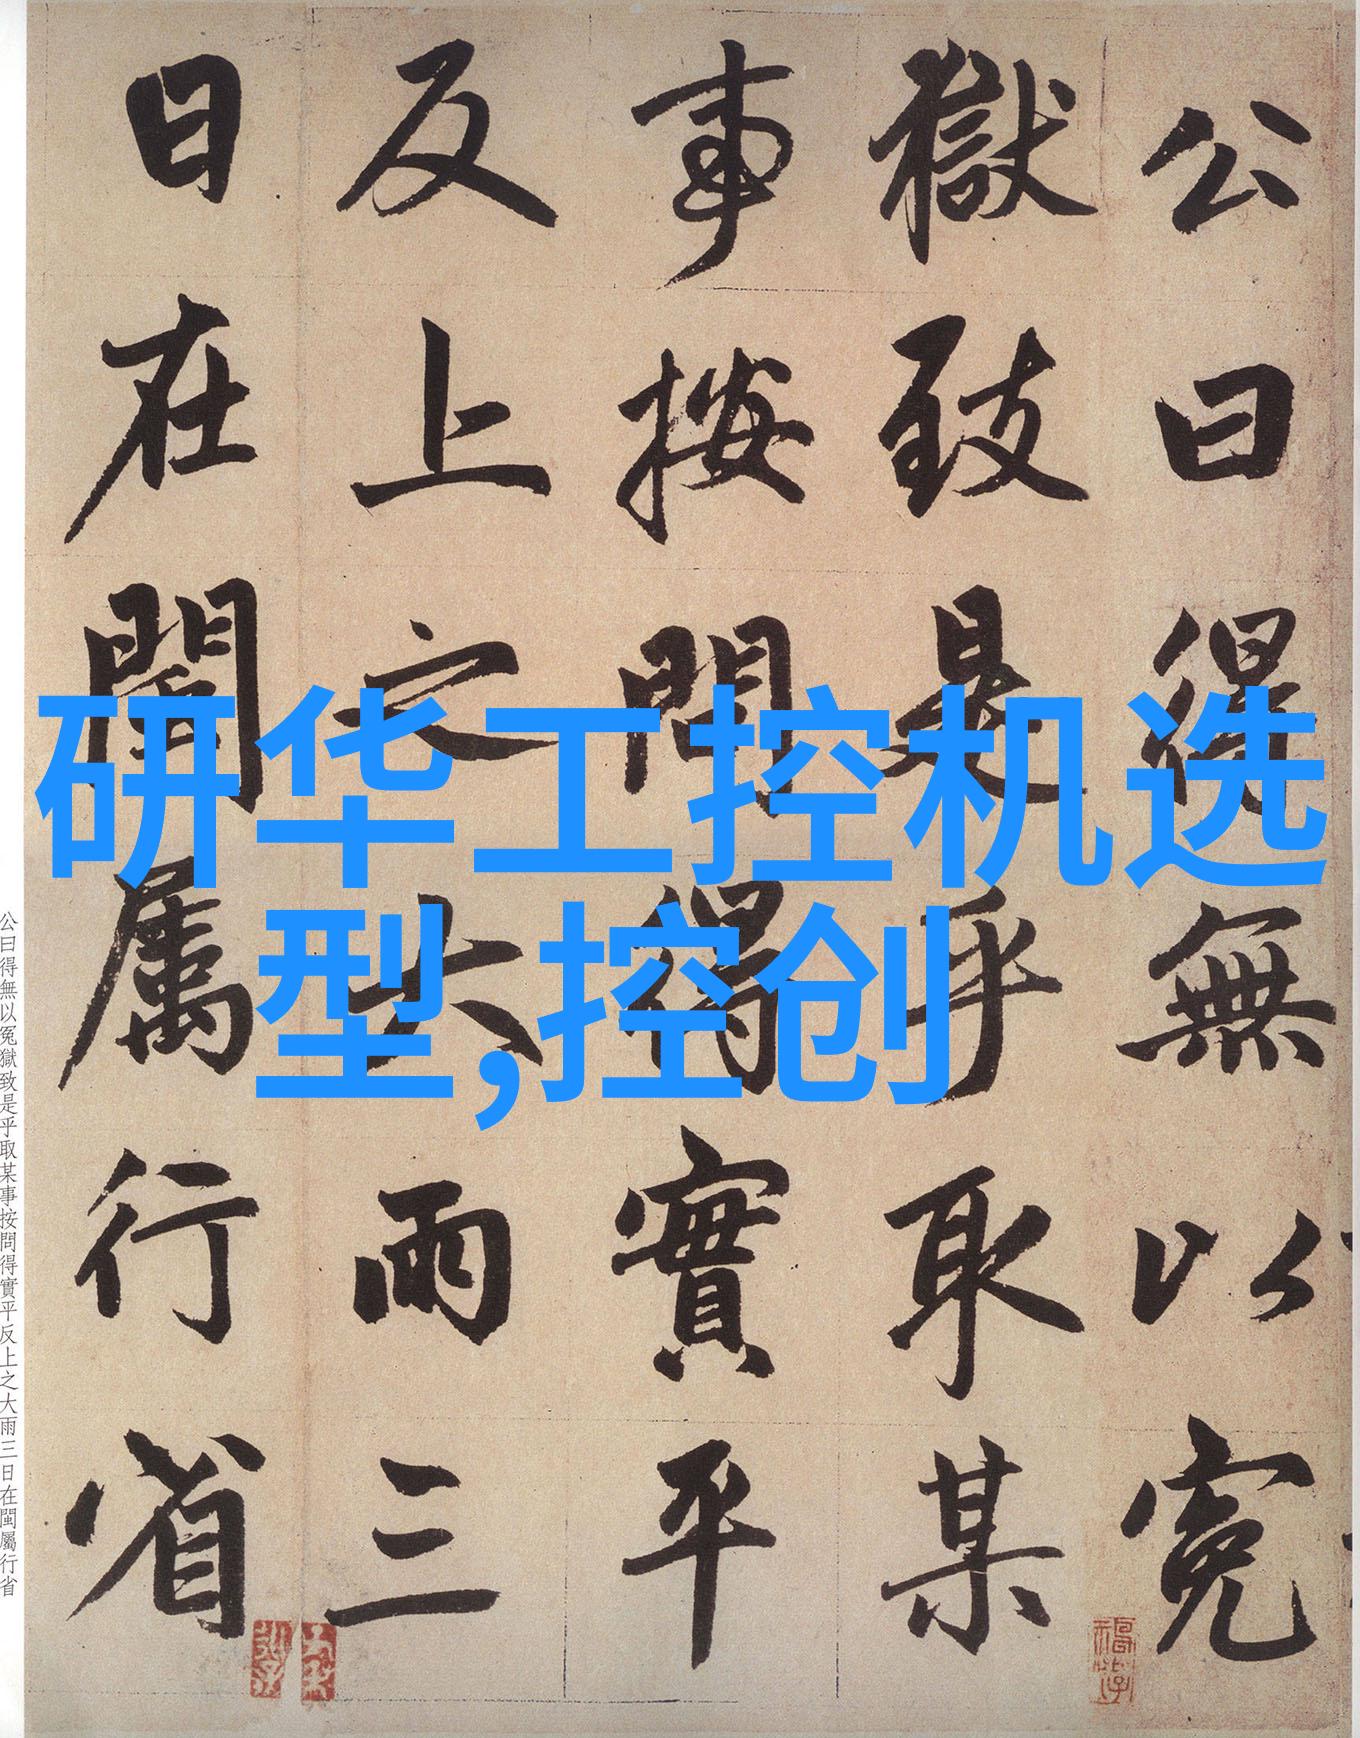 公曰得無以冤
獄致是乎取某
事按問得實平
反上之大雨三
日在閩屬行省
研华工控机选
型,控创
公曰得無以冤獄致是乎取某事按問得實平反上之大雨三日在閩屬行省